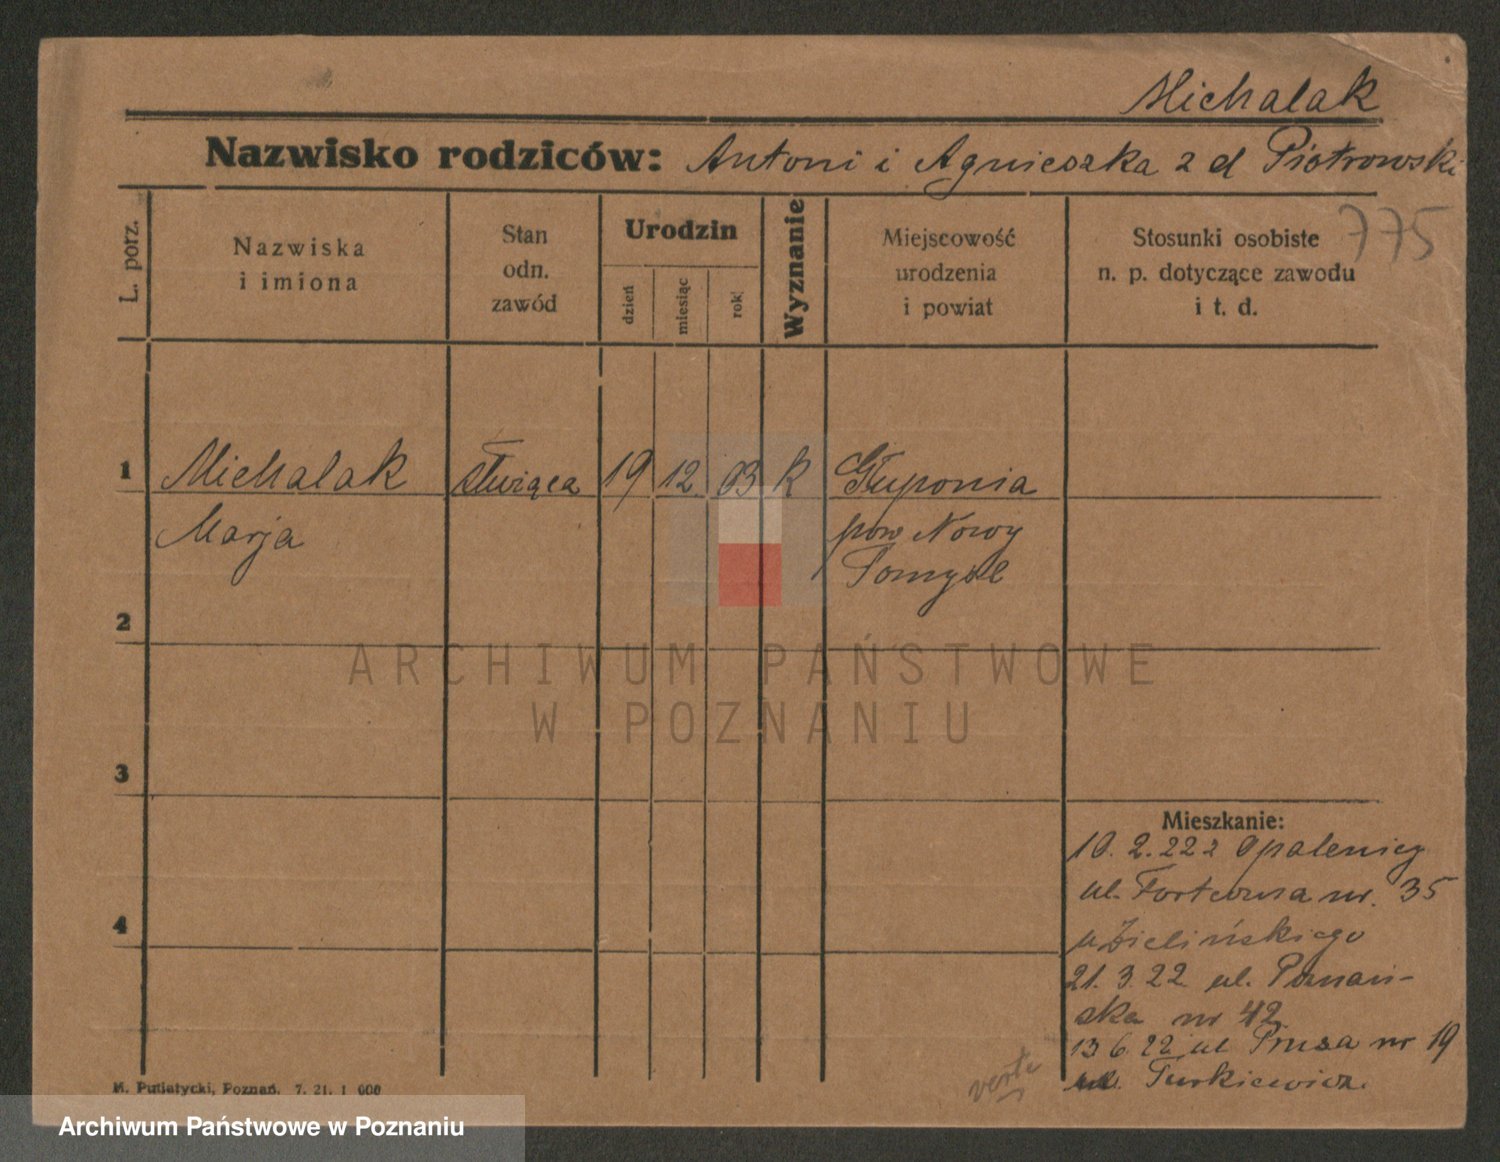 Michalak
Nazwisko rodziców: Antoni i Agnieszka z d Piotrowski
775
L. porz.
Nazwiska
i imiona
Stan
odn.
zawód
Urodzin
dzień
miesiąc
rok
Wyznanie
Miejscowość
urodzenia
i powiat
Stosunki osobiste
n. p. dotyczące zawodu
i t. d.
1 Michalak służąca 19 12 03 k Głuponia
Marja pow Nowy
Tomysl
2
ARCHIWUM PAŃSTWOWE
W POZNANIU
3
Mieszkanie:
10. 2. 22 z Opalenicy
ul. Forteczna nr. 35
u Zielińskiego
4
21. 3. 22 ul. Poznań-
ska nr 42
13 6 22 ul Prusa nr 19
Turkiewicz
verte
M. Putiatycki, Poznań. 7. 21. 1 000
Archiwum Państwowe w Poznaniu